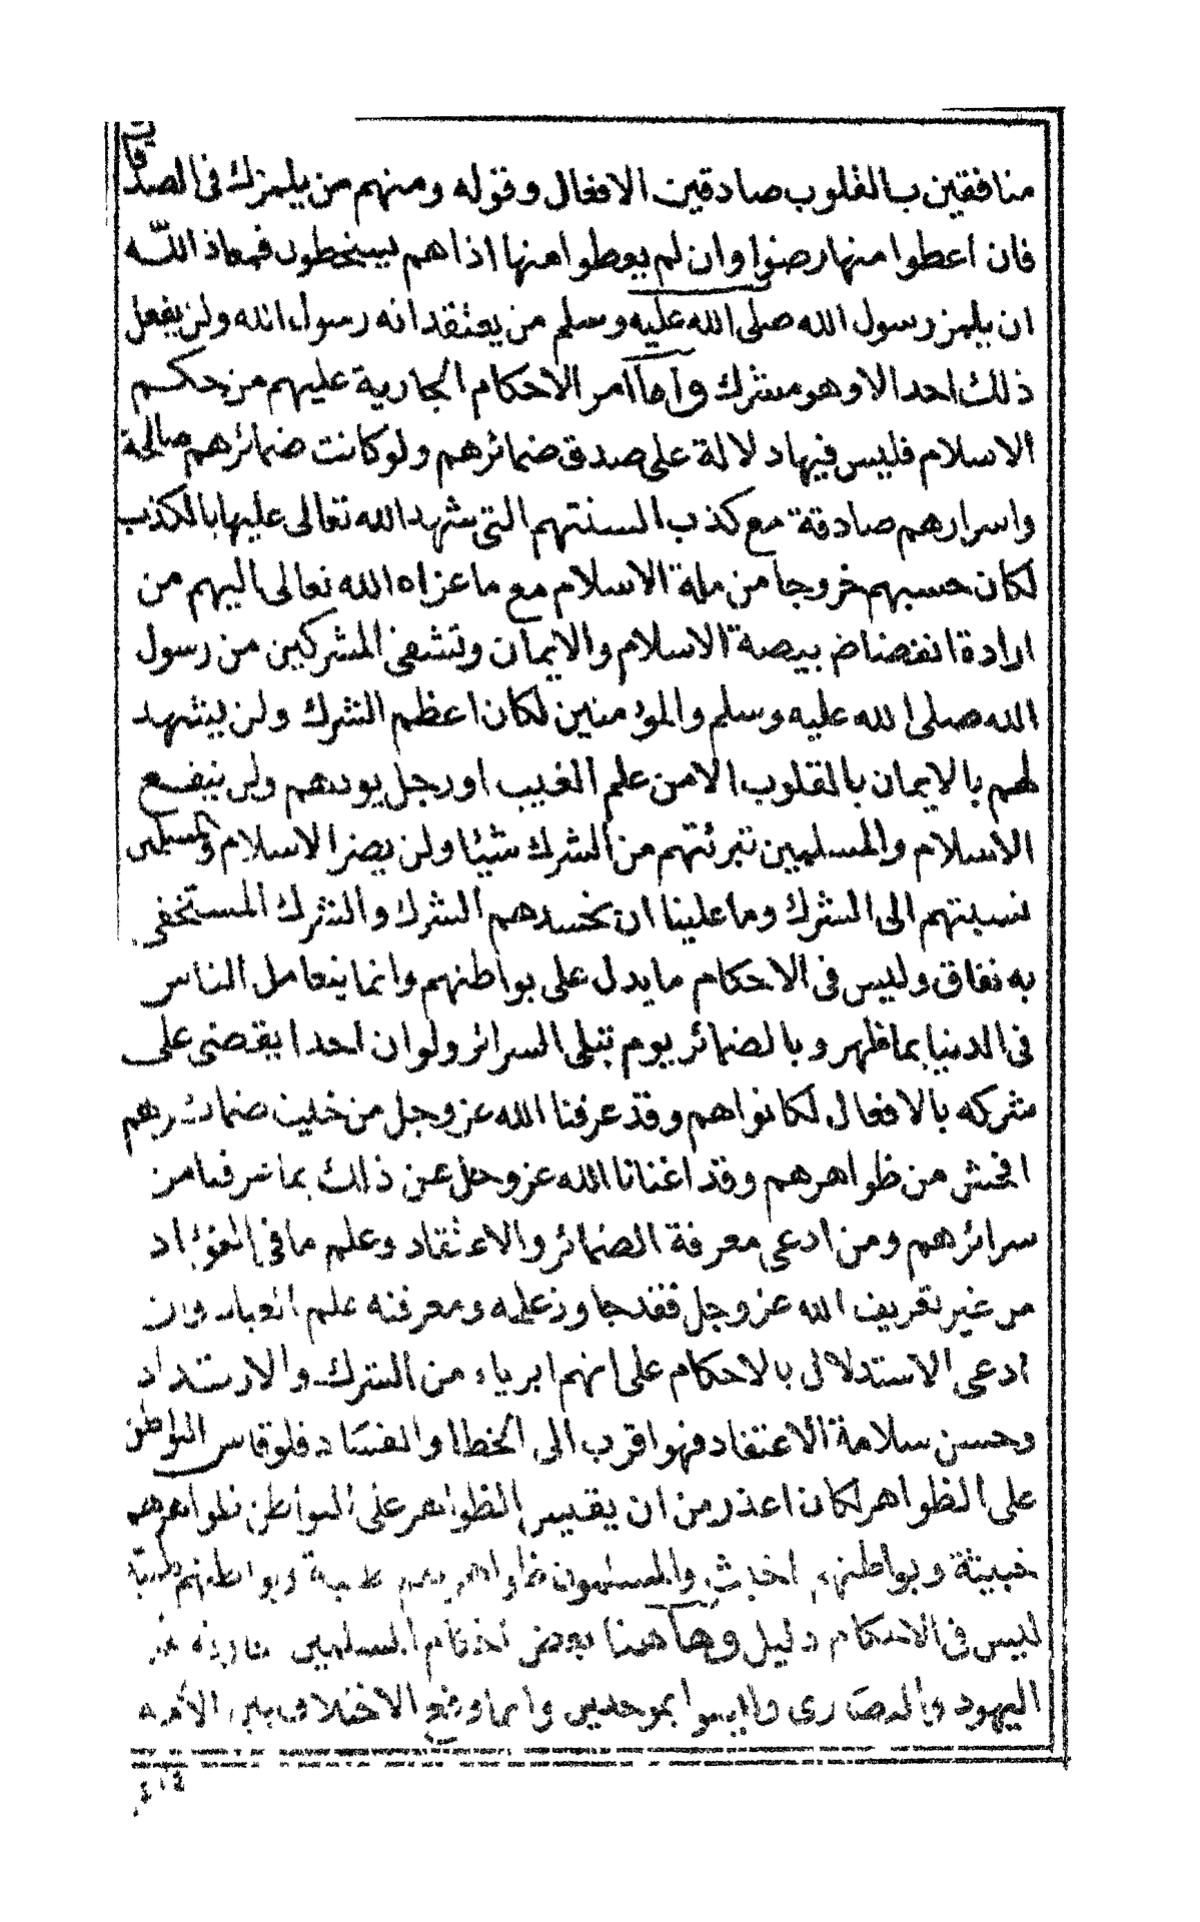 منافقين بالقلوب صادقين الافعال وقوله ومنهم من يلمزك في الصدقات
فان اعطوا منها رضوا وان لم يعطوا منها اذا هم يسخطون فمعاذ الله
ان يلمز رسول الله صلى الله عليه وسلم من يعتقد انه رسول الله ولن يفعل
ذلك احد الا وهو مشرك واما امر الاحكام الجارية عليهم من حكم
الاسلام فليس فيها دلالة على صدق ضمائرهم ولو كانت ضمائرهم صالحة
واسرارهم صادقة مع كذب السنتهم التي شهد الله تعالى عليها بالكذب
لكان حسبهم خروجا من ملة الاسلام مع ما عزاه الله تعالى اليهم من
ارادة انفضاض بيضة الاسلام والايمان وتشفى المشركين من رسول
الله صلى الله عليه وسلم والمؤمنين لكان اعظم الشرك ولن يشهد
لهم بالايمان بالقلوب الا من علم الغيب او رجل يوددهم ولن ينفع
الاسلام والمسلمين تبرئتهم من الشرك شيئا ولن يضر الاسلام والمسلمين
نسبتهم الى الشرك وما علينا ان نحسدهم الشرك والشرك المستخفى
به نفاق وليس في الاحكام ما يدل على بواطنهم وانما يتعامل الناس
في الدنيا بما ظهر وبالضمائر يوم تبلى السرائر ولو ان احدا يقضى على
شركه بالافعال لكانوا هم وقد عرفنا الله عز وجل من خبث ضمائرهم
افحش من ظواهرهم وقد اغنانا الله عز وجل عن ذلك بما عرفنا من
سرائرهم ومن ادعى معرفة الضمائر والاعتقاد وعلم ما في الفؤاد
من غير تعريف الله عز وجل فقد جاوز علمه ومعرفته علم العباد وان
ادعى الاستدلال بالاحكام على انهم ابرياء من الشرك والارتداد
وحسن سلامة الاعتقاد فهو اقرب الى الخطا والفساد فلو قاس البواطن
على الظواهر لكان اعذر من ان يقيس الظواهر على البواطن ظواهرهم
خبيثة وبواطنهم اخبث والمسلمون ظواهرهم طيبة وبواطنهم طيبة
ليس في الاحكام دليل وها هنا بعض احكام المسلمين
اليهود والنصارى وليسوا بموحدين وانما وقع الاختلاف بين الأمة